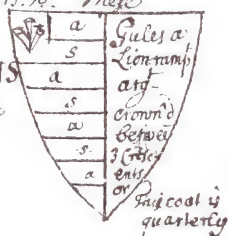 a
s
a
s
a
s
a
Gules a
Lion ramp^t
arg^t
crown'd
betwee
3 Cresc
ents
or
This coat is
quarterly